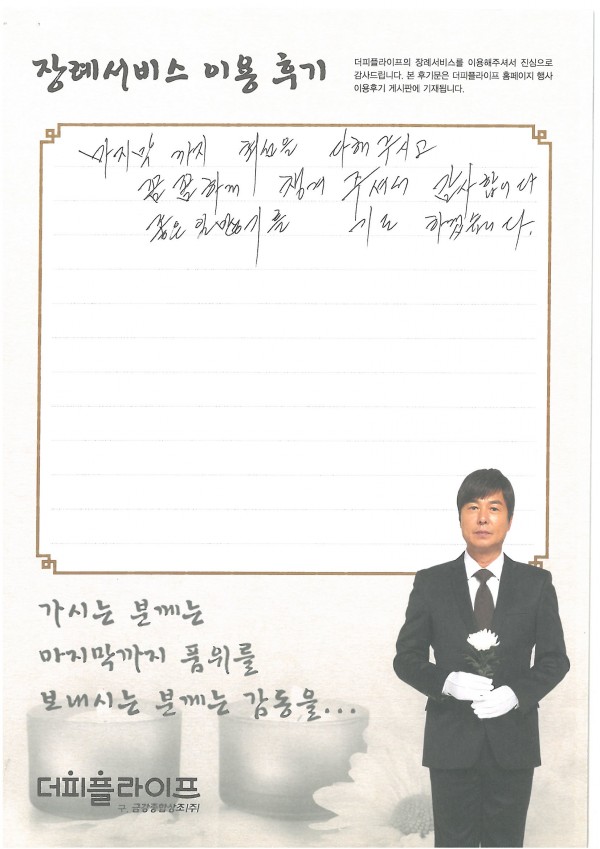 장례서비스 이용 후기
더피플라이프의 장례서비스를 이용해주셔서 진심으로
감사드립니다. 본 후기문은 더피플라이프 홈페이지 행사
이용후기 게시판에 기재됩니다.
마지막 까지 최선을 다해주시고
꼼꼼하게 챙겨 주셔서 감사합니다
좋은 일만 있기를 기도 하겠습니다.
가시는 분께는
마지막까지 품위를
보내시는 분께는 감동을...
더피플라이프
구. 금강종합상조(주)